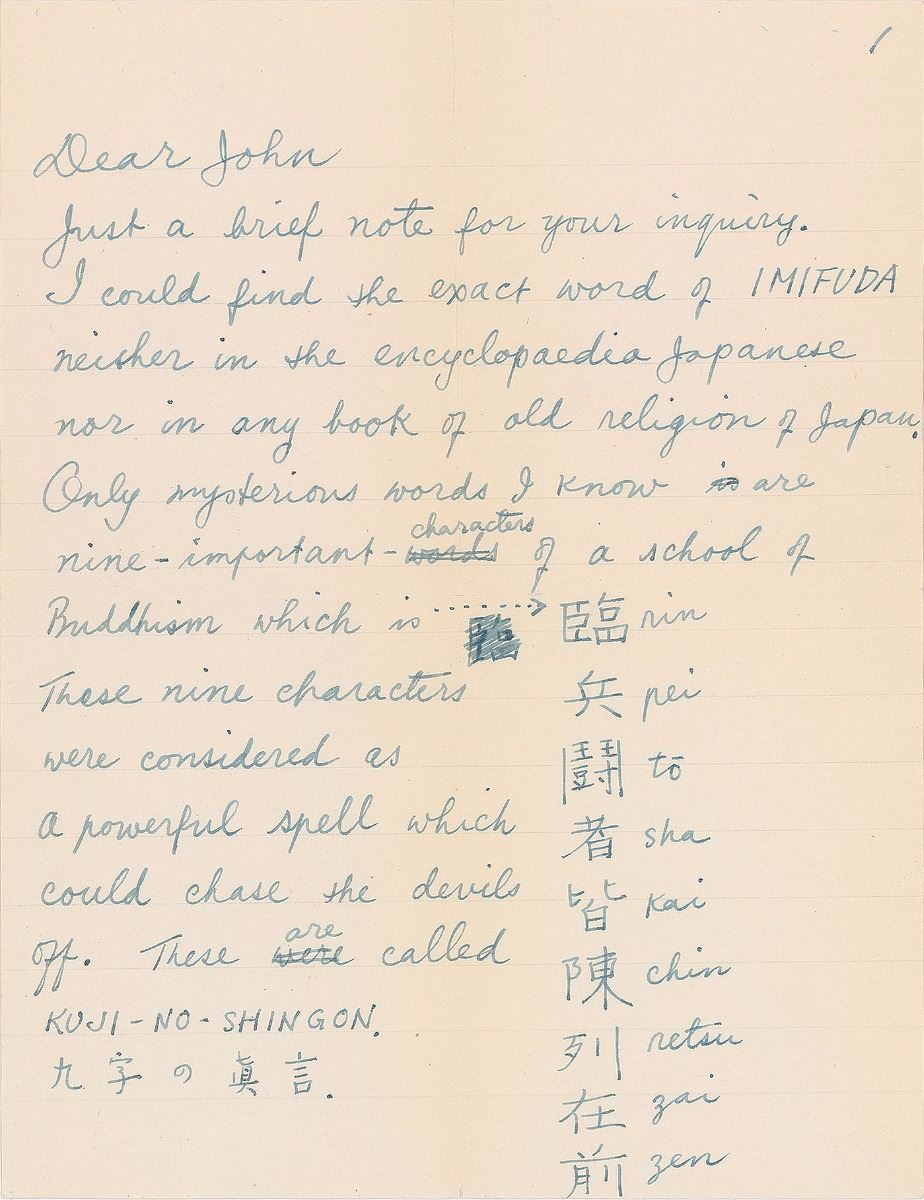 1
Dear John
Just a brief note for your inquiry.
I could find the exact word of IMIFUDA
neither in the encyclopaedia Japanese
nor in any book of old religion of Japan.
Only mysterious words I know is are
nine-important-words characters of a school of
Buddhism which is ........> 臨 rin
兵 pei
鬪 tō
者 sha
皆 kai
陳 chin
列 retsu
在 zai
前 zen
These nine characters
were considered as
a powerful spell which
could chase the devils
off. These were are called
KUJI-NO-SHINGON.
九字の眞言.